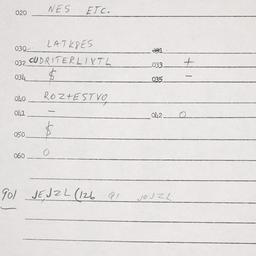 020 NES ETC.
030 LATKPES 031
032 CUDRITERLIVTL 033 +
034 $ 035 -
040 ROZTESTVO,
041 - 042 0
$
050
060 0
901 JEJZL (126 91 JEJZL